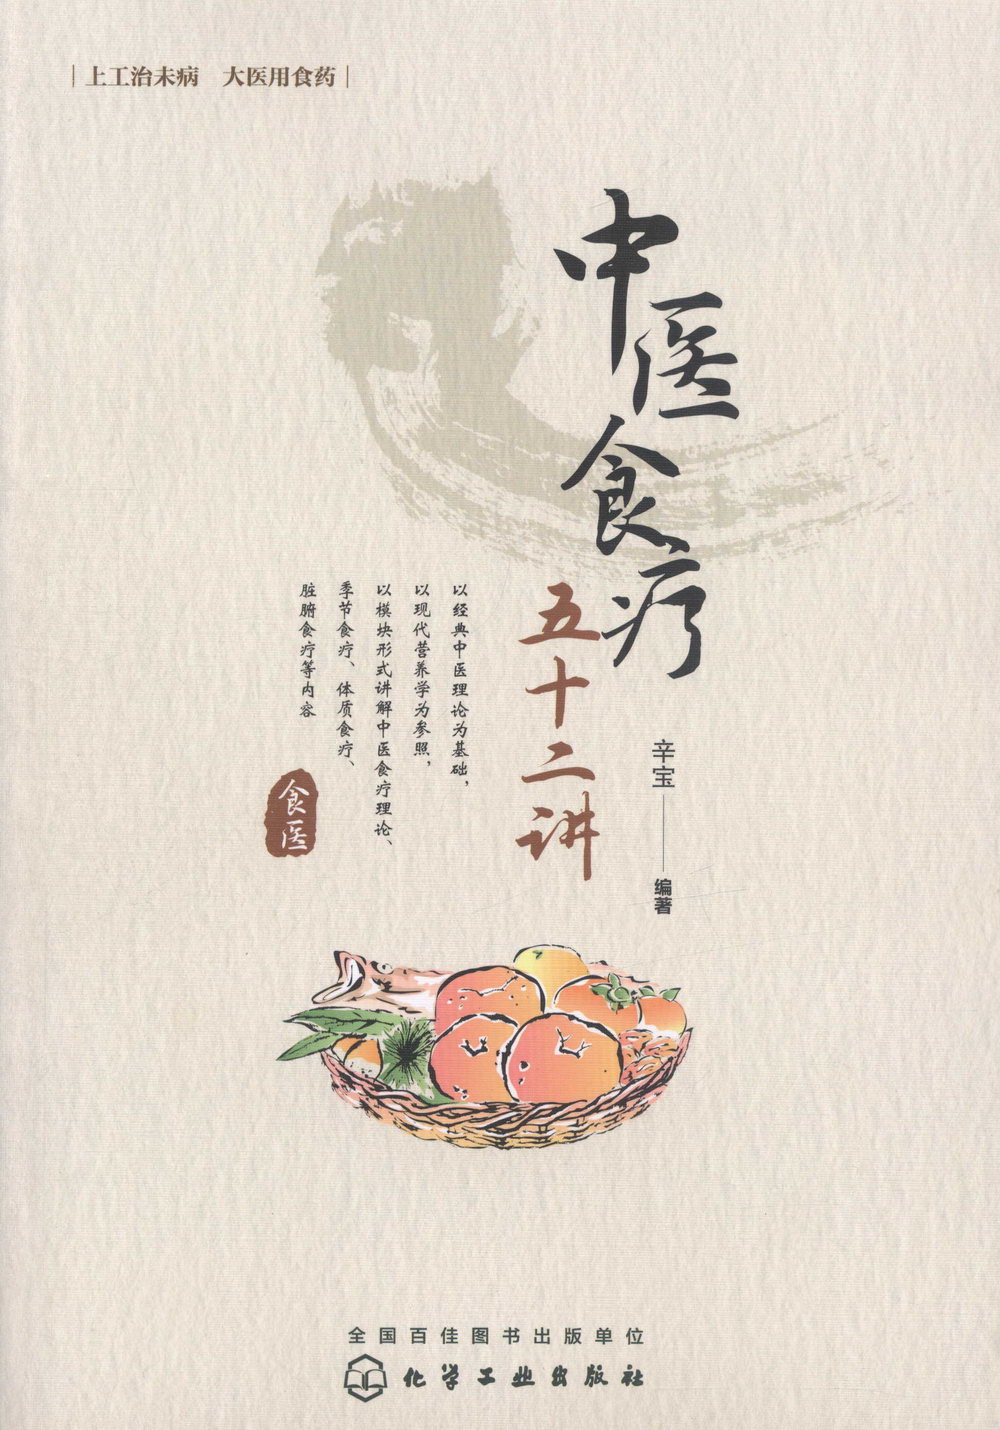 上工治未病　大医用食药
中医食疗
五十二讲
辛宝——编著
以经典中医理论为基础，
以现代营养学为参照，
以模块形式讲解中医食疗理论、
季节食疗、体质食疗、
脏腑食疗等内容
食医
全国百佳图书出版单位
化学工业出版社